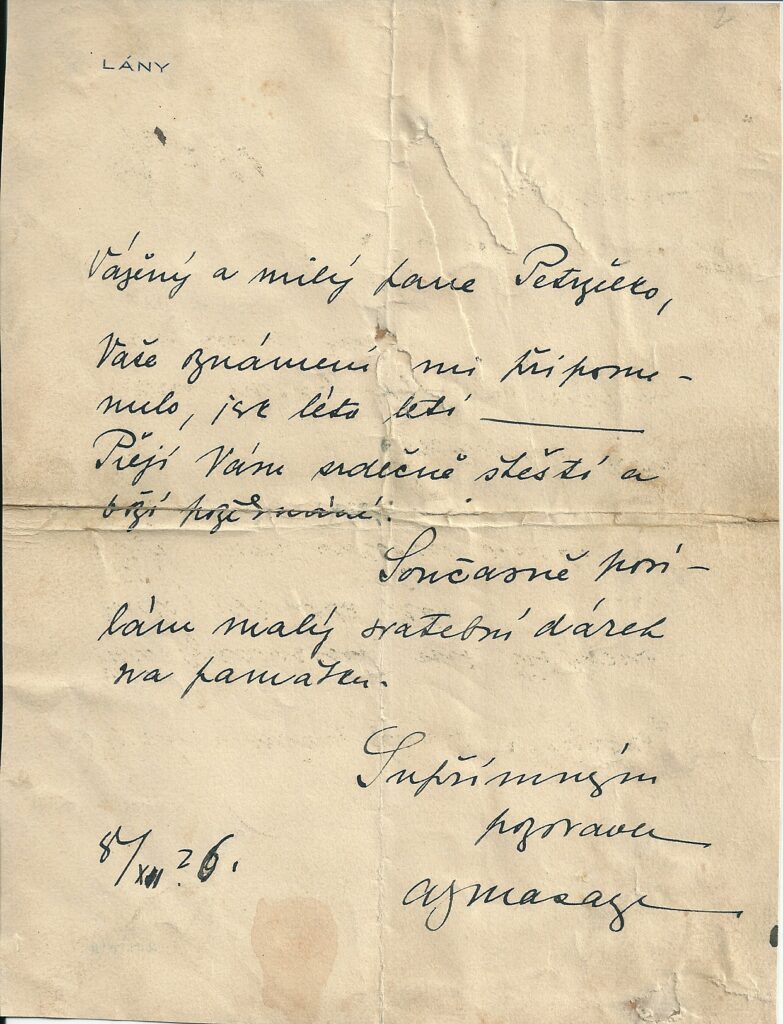 LÁNY
2
Vážený a milý pane Petrželko,
Vaše oznámení mi připome-
nulo, jak léta letí —
Přeji Vám srdečně štěstí a
boží požehnání.
Současně posí-
lám malý svatební dárek
na památku.
S upřímným
pozdravem
TGMasaryk
8/XII 26.